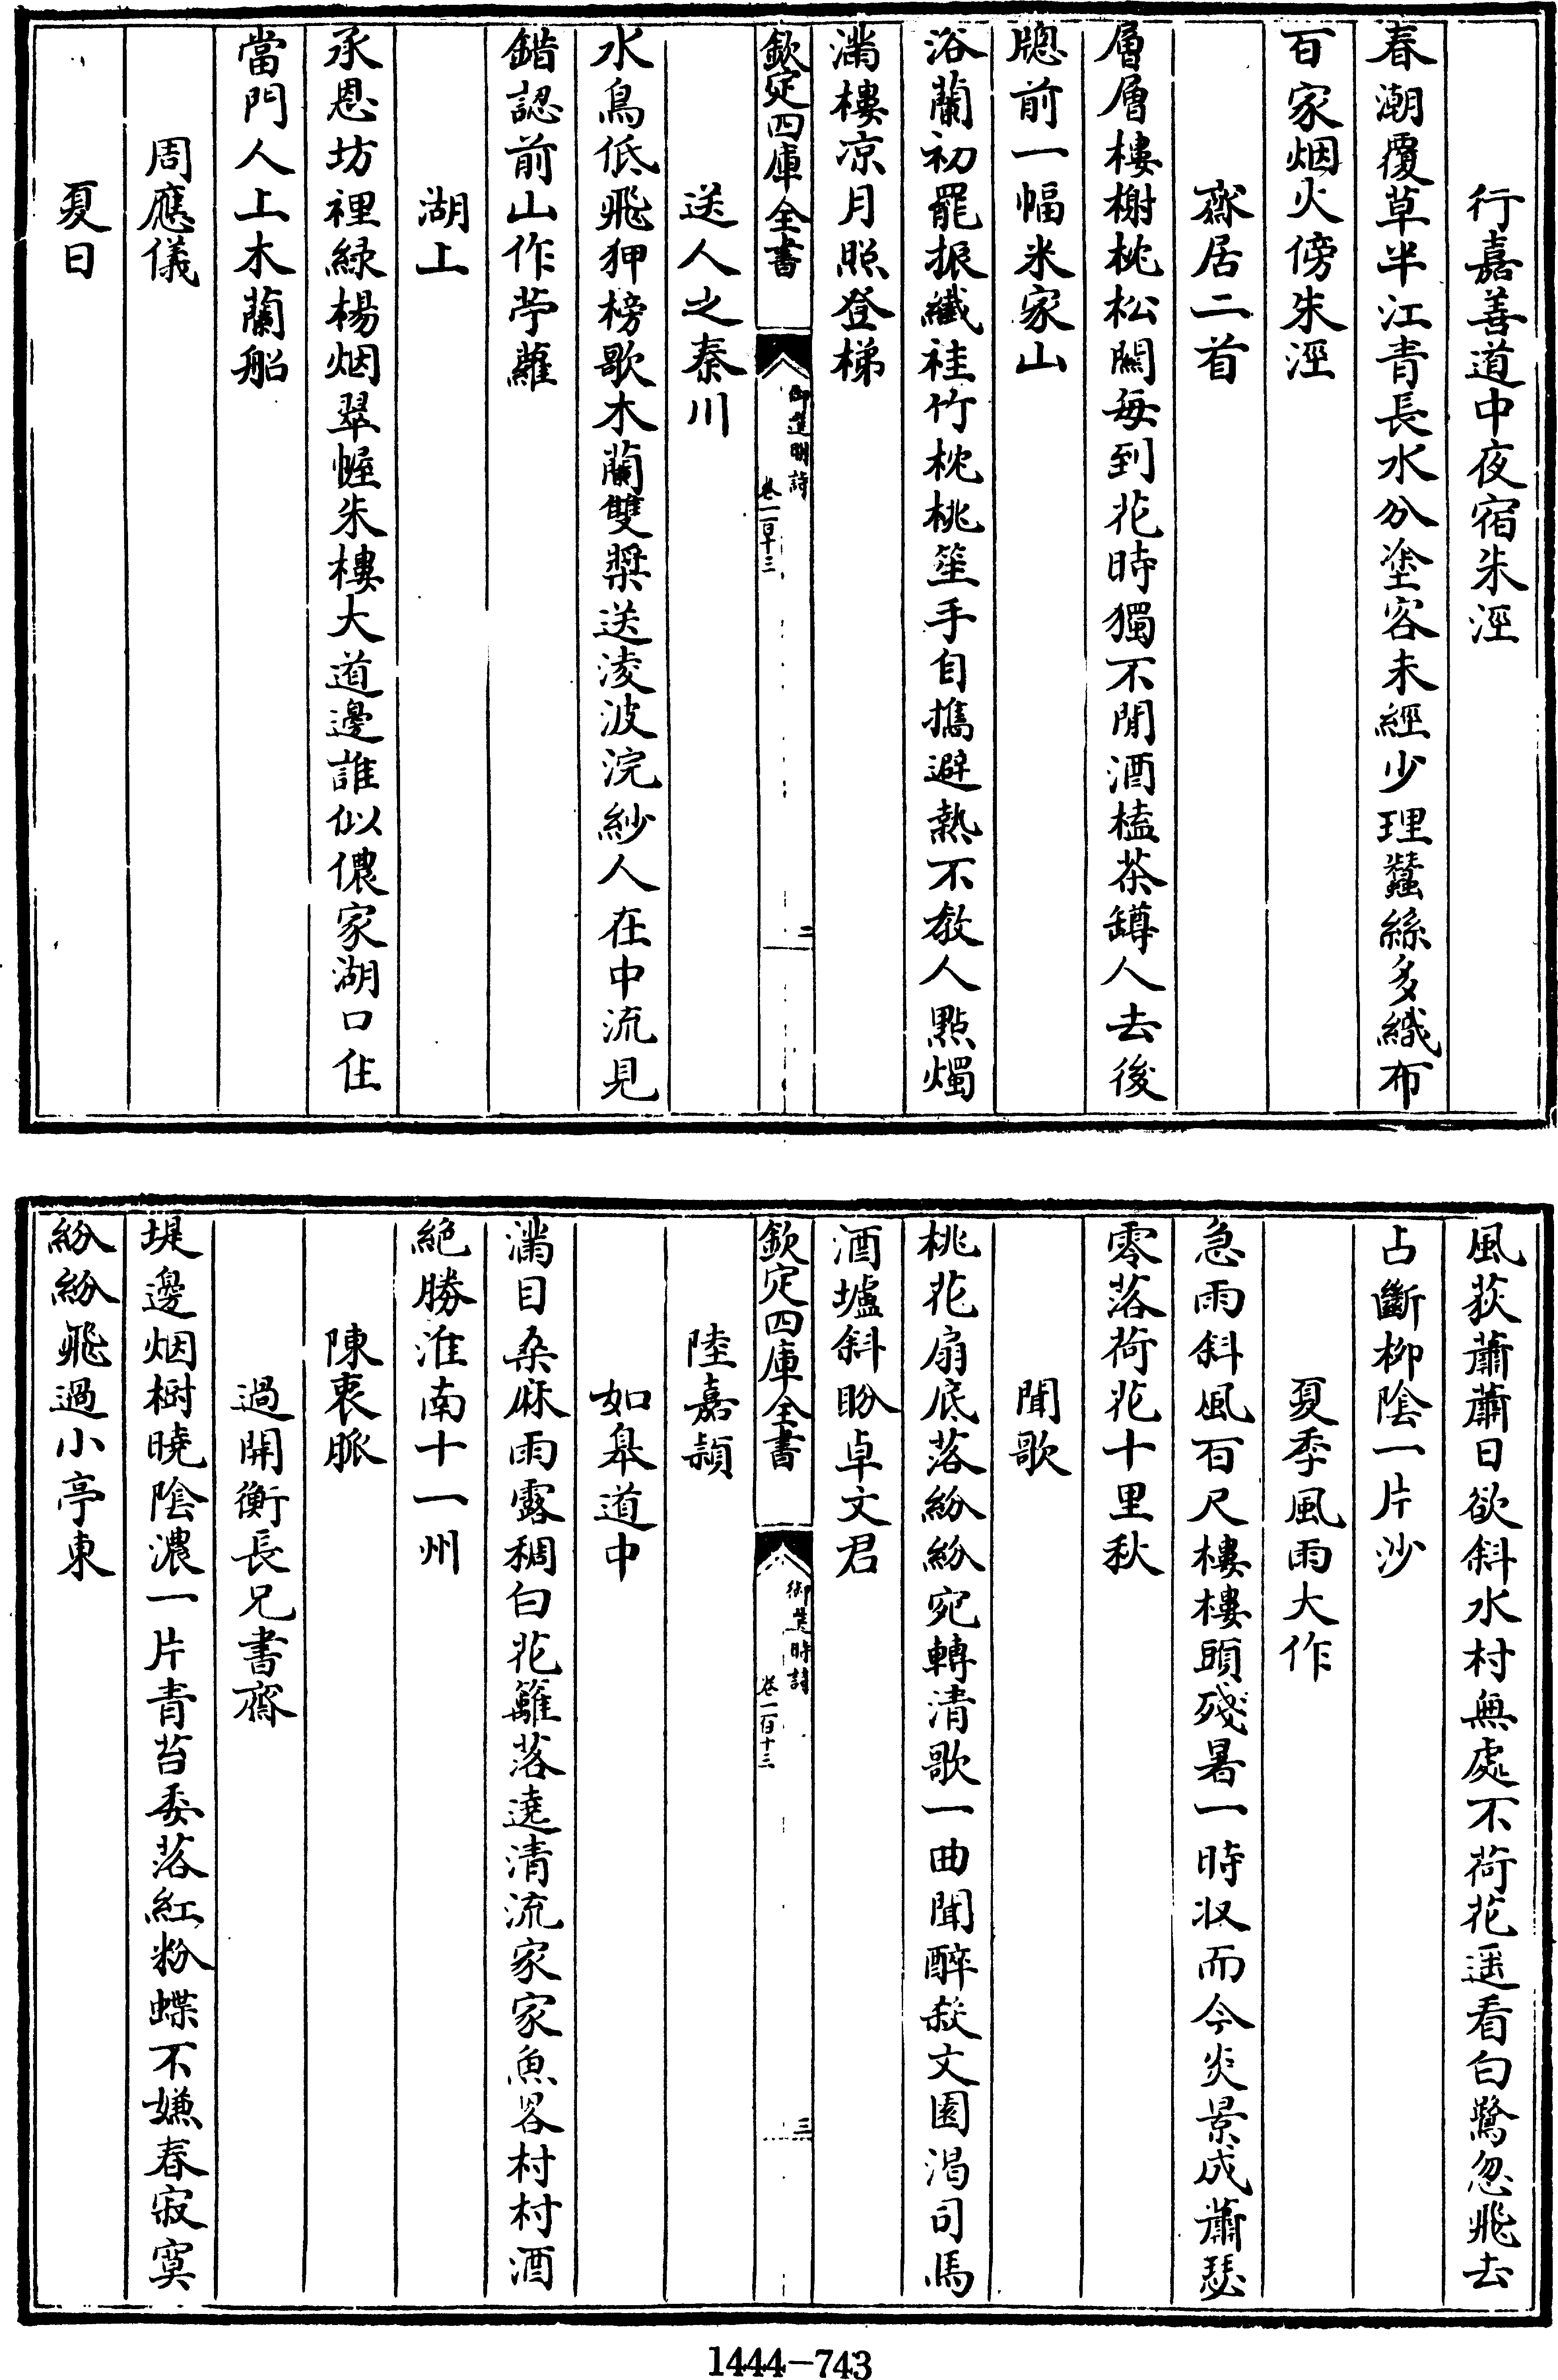 行嘉善道中夜宿朱涇
春潮覆草半江青長水分塗客未經少理蠶絲多織布
百家烟火傍朱涇
齋居二首
層層樓榭枕松關每到花時獨不閒酒榼茶罇人去後
牕前一幅米家山
浴蘭初罷振纖袿竹枕桃笙手自攜避熱不教人點燭
滿樓凉月照登梯
欽定四庫全書
御選明詩
卷一百十三
二
送人之秦川
水鳥低飛狎榜歌木蘭雙槳送淩波浣紗人在中流見
錯認前山作苧蘿
湖上
承恩坊裡綠楊烟翠幄朱樓大道邊誰似儂家湖口住
當門人上木蘭船
周應儀
夏日
風荻蕭蕭日欲斜水村無處不荷花遥看白鷺忽飛去
占斷柳陰一片沙
夏季風雨大作
急雨斜風百尺樓樓頭殘暑一時收而今炎景成蕭瑟
零落荷花十里秋
聞歌
桃花扇底落紛紛宛轉清歌一曲聞醉殺文園渴司馬
酒壚斜盼卓文君
欽定四庫全書
御選明詩
卷一百十三
三
陸嘉穎
如皋道中
滿目桑麻雨露稠白花籬落遶清流家家魚畧村村酒
絕勝淮南十一州
陳衷脈
過開衡長兄書齋
堤邊烟樹曉陰濃一片青苔委落紅粉蝶不嫌春寂寞
紛紛飛過小亭東
1444-743